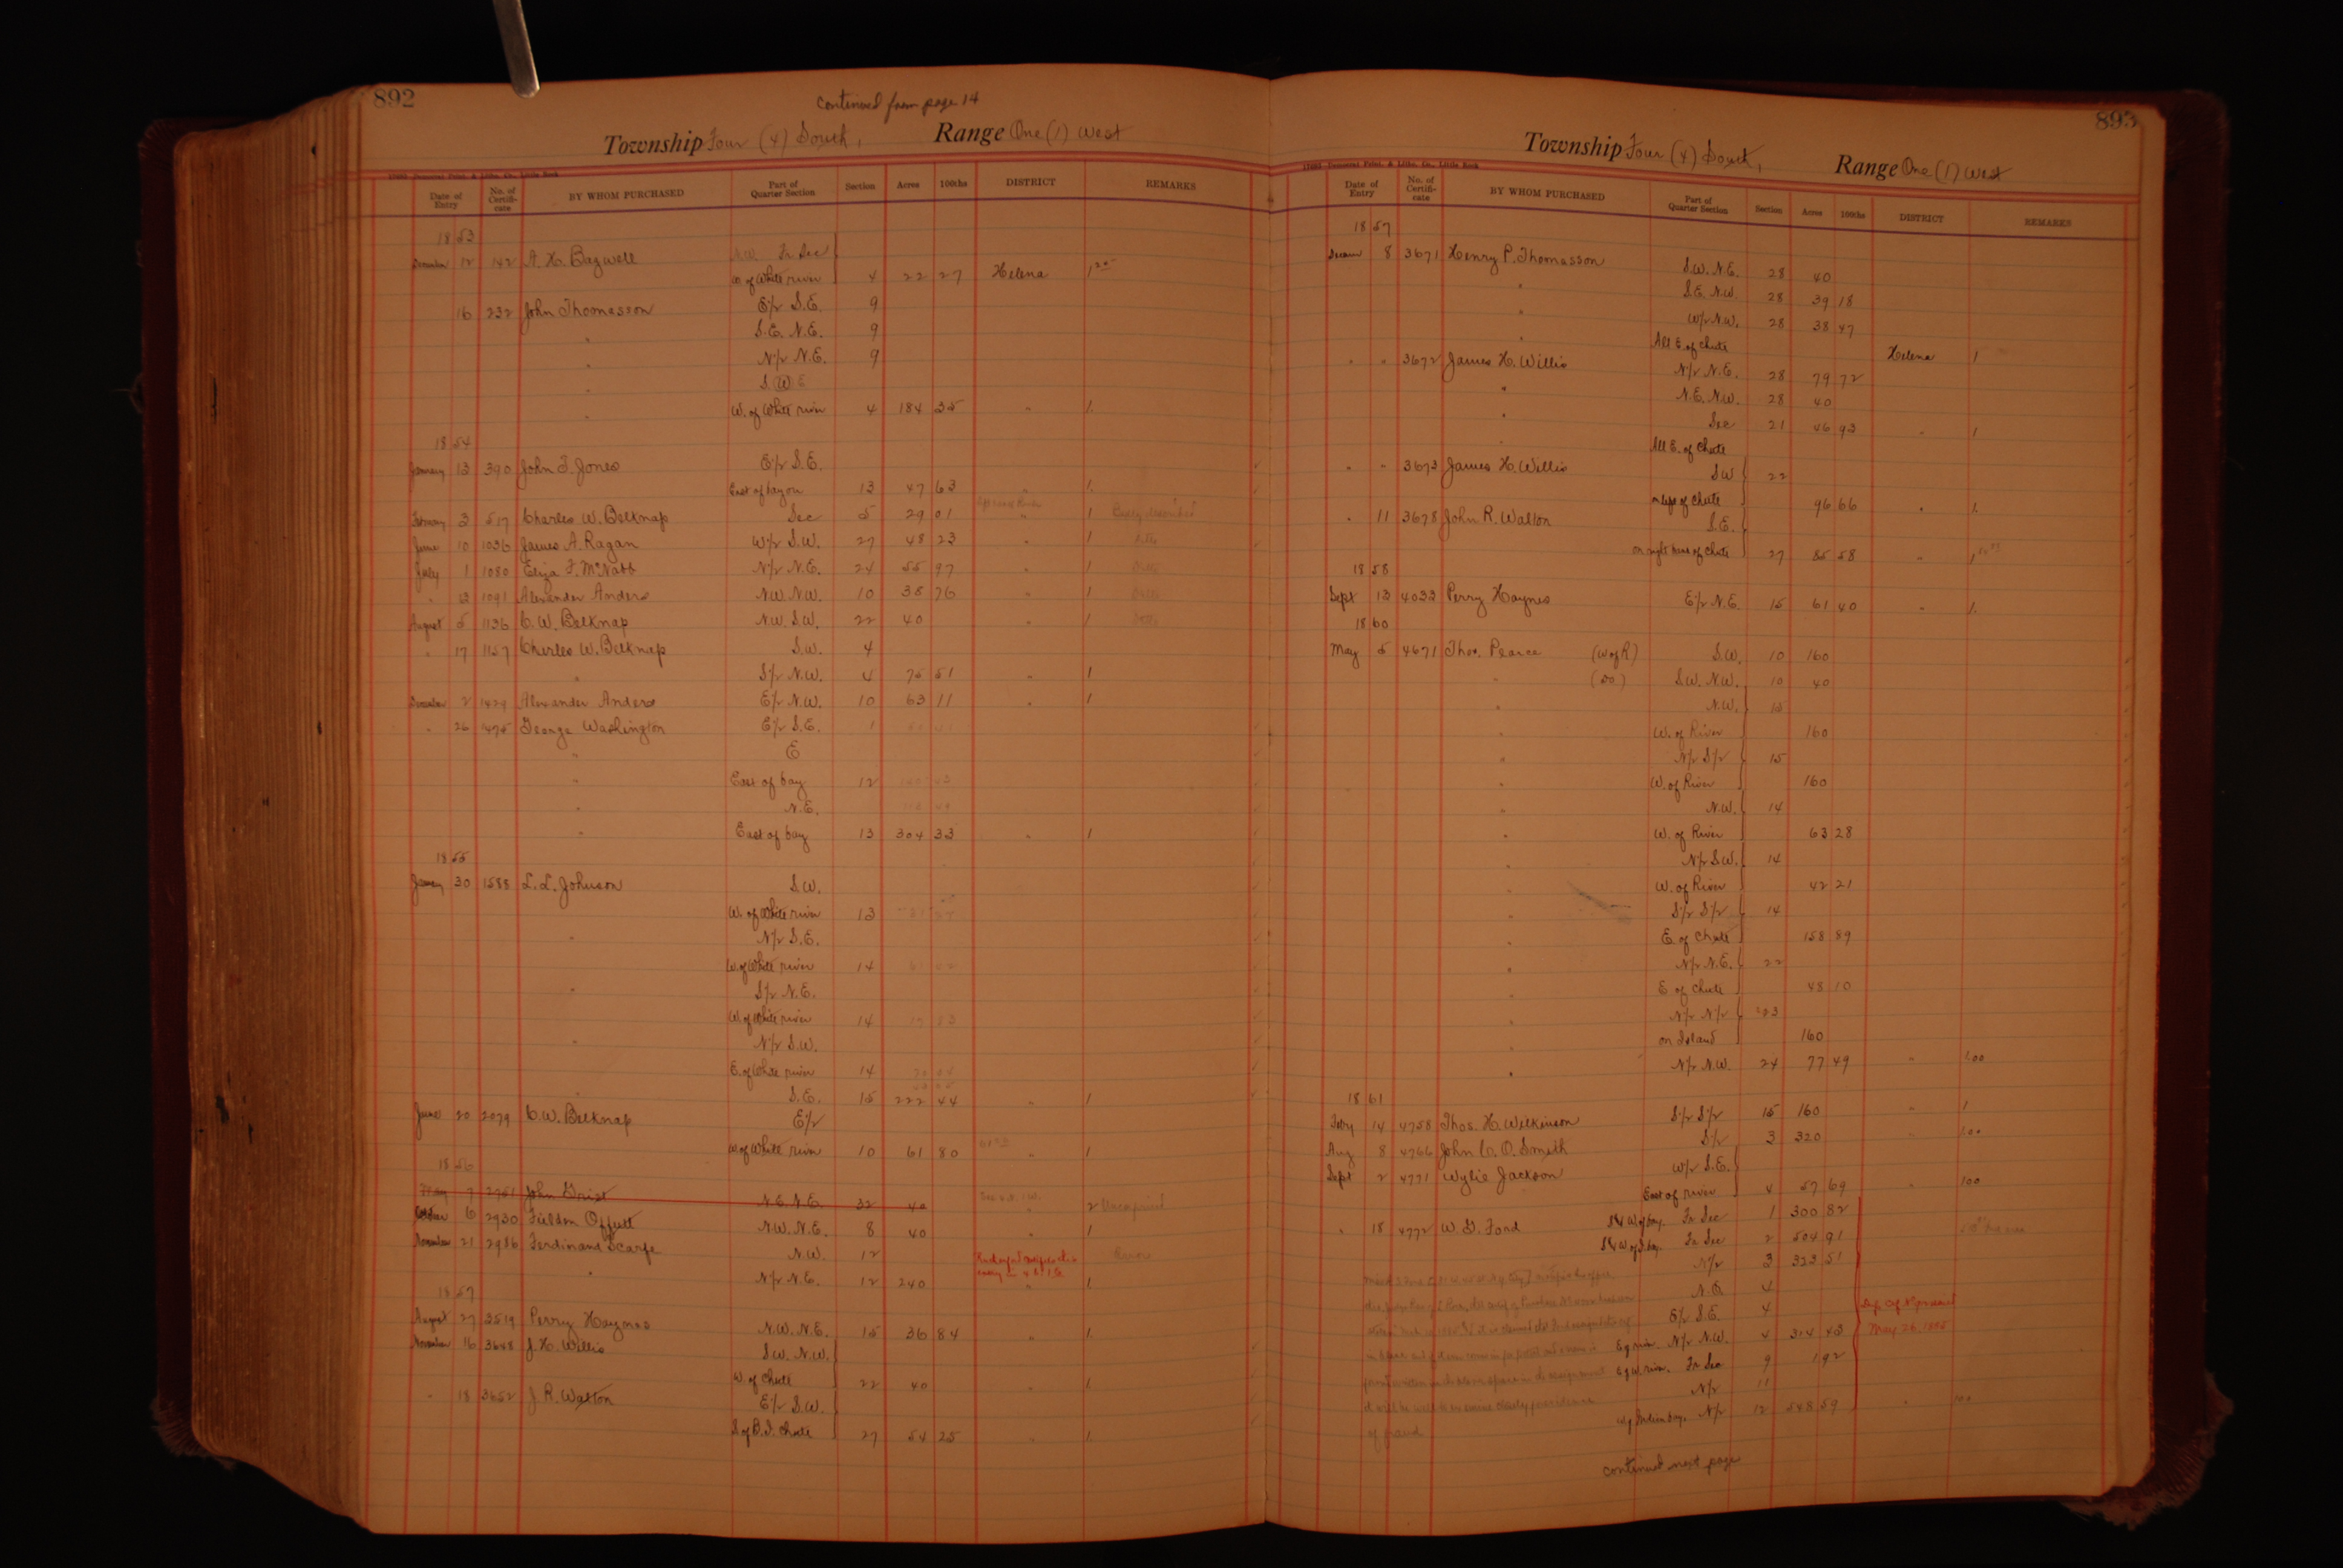 892
continued from page 14
Township Four (4) South, Range One (1) West
Date of Entry No. of Certificate BY WHOM PURCHASED Part of Quarter Section Section Acres 100ths DISTRICT REMARKS
1853
December 12 142 A. H. Bagwell N.W. Fr Sec
W of White river 4 22 27 Helena 1
16 232 John Thomasson E/2 S.E. 9
" S.E. N.E. 9
" N/2 N.E. 9
" S.W.
" W. of White river 4 184 35 " 1.
1854
January 13 390 John T. Jones E/2 S.E.
East of bayou 13 47 63 " 1.
February 3 517 Charles W. Belknap Sec 5 29 01 " 1 Badly described
June 10 1036 James A. Ragan W/2 S.W. 27 48 23 " 1
July 1 1080 Eliza F. McNabb N/2 N.E. 24 55 97 " 1
" 13 1091 Alexander Anders N.W. N.W. 10 38 76 " 1
August 5 1136 C. W. Belknap N.W. S.W. 22 40 " 1
" 17 1157 Charles W. Belknap S.W. 4
" S/2 N.W. 4 75 51 " 1
December 2 1429 Alexander Anders E/2 N.W. 10 63 11 " 1
" 26 1475 George Washington E/2 S.E. 1
" E
" East of bay 12
" N.E.
" East of bay 13 304 33 " 1
1855
January 30 1588 L. L. Johnson S.W.
W. of White river 13
" N/2 S.E.
W. of White river 14
" S/2 N.E.
W. of White river 14
" N/2 S.W.
E. of White river 14
" S.E. 15 222 44 " 1
June 20 2079 C. W. Belknap E/2
W of White river 10 61 80 " 1
1856
May 7 2751 John Grist N.E. N.E. 32 40 " 2
October 6 2930 Fieldon Offutt N.W. N.E. 8 40 " 1
November 21 2986 Ferdinand Scarfe N.W. 12
" N/2 N.E. 12 240 " 1.
1857
August 27 3519 Perry Haynes N.W. N.E. 15 36 84 " 1.
November 16 3648 J. H. Willis S.W. N.W.
W. of Chute 22 40 " 1.
" 18 3652 J. R. Walton E/2 S.W.
S of B. I. Chute 27 54 25 " 1.
893
Township Four (4) South, Range One (1) West
Date of Entry No. of Certificate BY WHOM PURCHASED Part of Quarter Section Section Acres 100ths DISTRICT REMARKS
1857
8 3671 Henry P. Thomasson S.W. N.E. 28 40
" S.E. N.W. 28 39 18
" W/2 N.W. 28 38 47
" All E. of Chute Helena 1
" " 3672 James H. Willis N/2 N.E. 28 79 72
" N.E. N.W. 28 40
" Sec 21 46 93 " 1
" All E. of Chute
" " 3673 James H. Willis S.W 22
on left of Chute 96 66 " 1.
" 11 3678 John R. Walton S.E.
on right bank of Chute 27 85 58 " 1
1858
Sept 13 4033 Perry Haynes E/2 N.E. 15 61 40 " 1.
1860
May 5 4671 Thos. Pearce (W of R) S.W. 10 160
" (Do) S.W. N.W. 10 40
" N.W. 15
" W. of River 160
" N/2 S/2 15
" W. of River 160
" N.W. 14
" W. of River 63 28
" N/2 S.W. 14
" W. of River 42 21
" S/2 S/2 14
" E of Chute 158 89
" N/2 N.E. 22
" E of Chute 48 10
" N/2 N/2 23
" on Island 160
" N/2 N.W. 24 77 49 " 1.00
1861
Feby 14 4758 Thos. H. Wilkinson S/2 S/2 15 160 " 1
Aug 8 4766 John C. O. Smith S/2 3 320 " 1.00
Sept 2 4771 Wylie Jackson W/2 S.E.
East of river 4 57 69 " 1.00
" 18 4772 W. G. Ford Fr Sec 1 300 82
Fr Sec 2 504 91
N/2 3 323 51
N.E. 4
E/2 S.E. 4
E of river. N/2 N.W. 4 314 43
E of W. river. Fr Sec 9 1 92
N/2 11
N/2 12 548 59 " 1.00
May 26, 1885
of fraud
continued next page